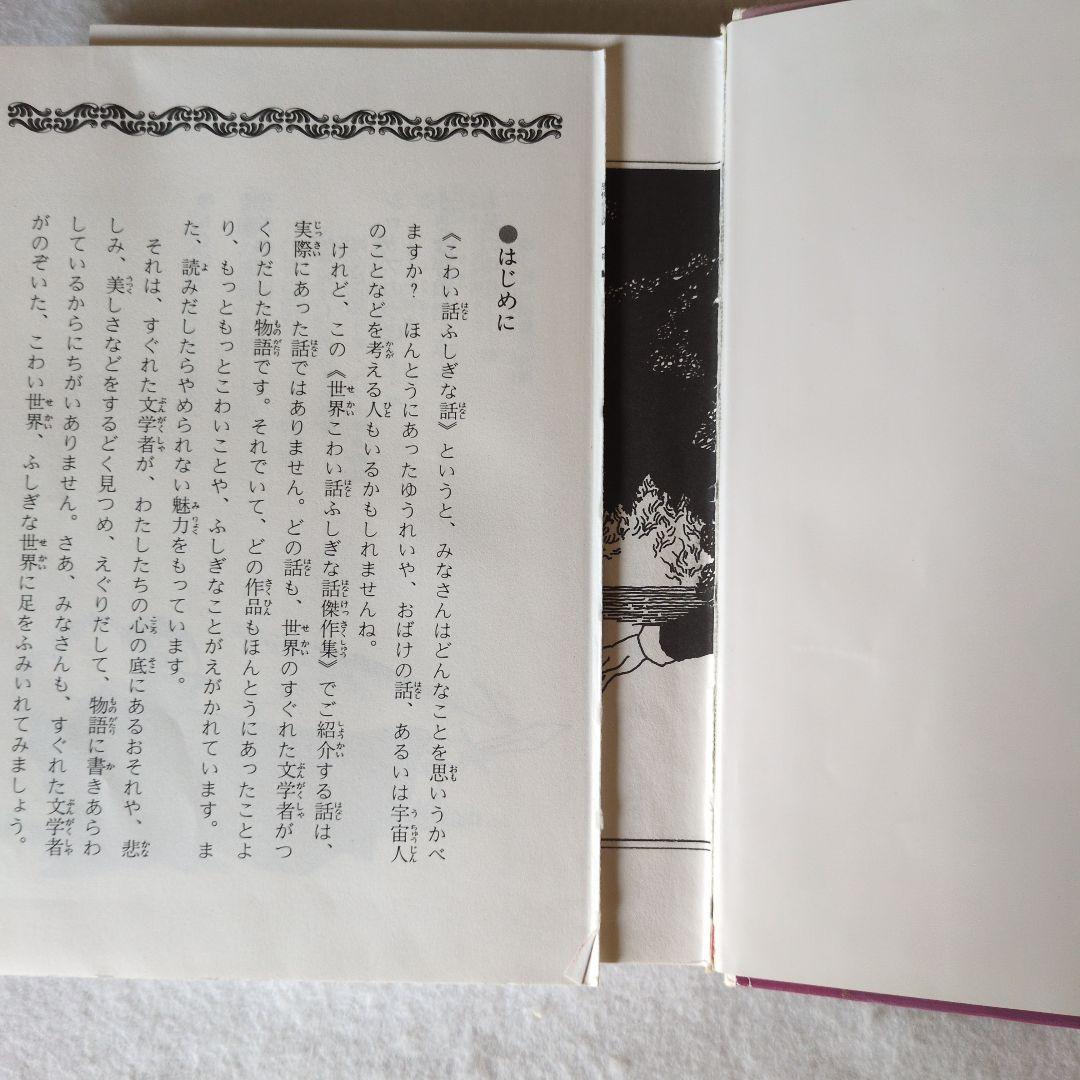 ●はじめに
《こわい話ふしぎな話》というと、みなさんはどんなことを思いうかべ
ますか？　ほんとうにあったゆうれいや、おばけの話、あるいは宇宙人
のことなどを考える人もいるかもしれませんね。
けれど、この《世界こわい話ふしぎな話傑作集》でご紹介する話は、
実際にあった話ではありません。どの話も、世界のすぐれた文学者がつ
くりだした物語です。それでいて、どの作品もほんとうにあったことよ
り、もっともっとこわいことや、ふしぎなことがえがかれています。ま
た、読みだしたらやめられない魅力をもっています。
それは、すぐれた文学者が、わたしたちの心の底にあるおそれや、悲
しみ、美しさなどをするどく見つめ、えぐりだして、物語に書きあらわ
しているからにちがいありません。さあ、みなさんも、すぐれた文学者
がのぞいた、こわい世界、ふしぎな世界に足をふみいれてみましょう。